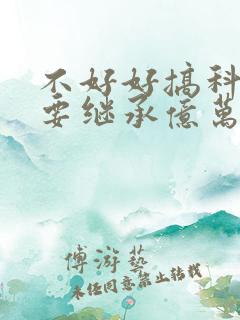 不好好搞科
要继承億萬
傅游藝
未经同意禁止转载